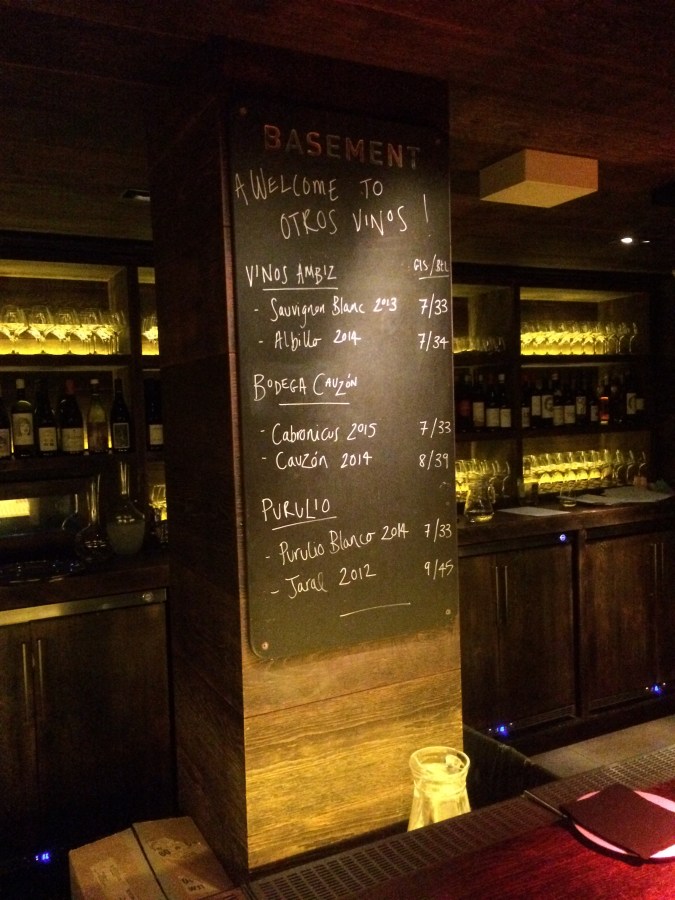 BASEMENT
A WELCOME TO
OTROS VINOS!
VINOS AMBIZ GLS/BTL
- Sauvignon Blanc 2013 7/33
- Albillo 2014 7/34
BODEGA CAUZÓN
- Cabronicus 2015 7/33
- Cauzón 2014 8/39
PURULIO
- Purulio Blanco 2014 7/33
- Jaral 2012 9/45